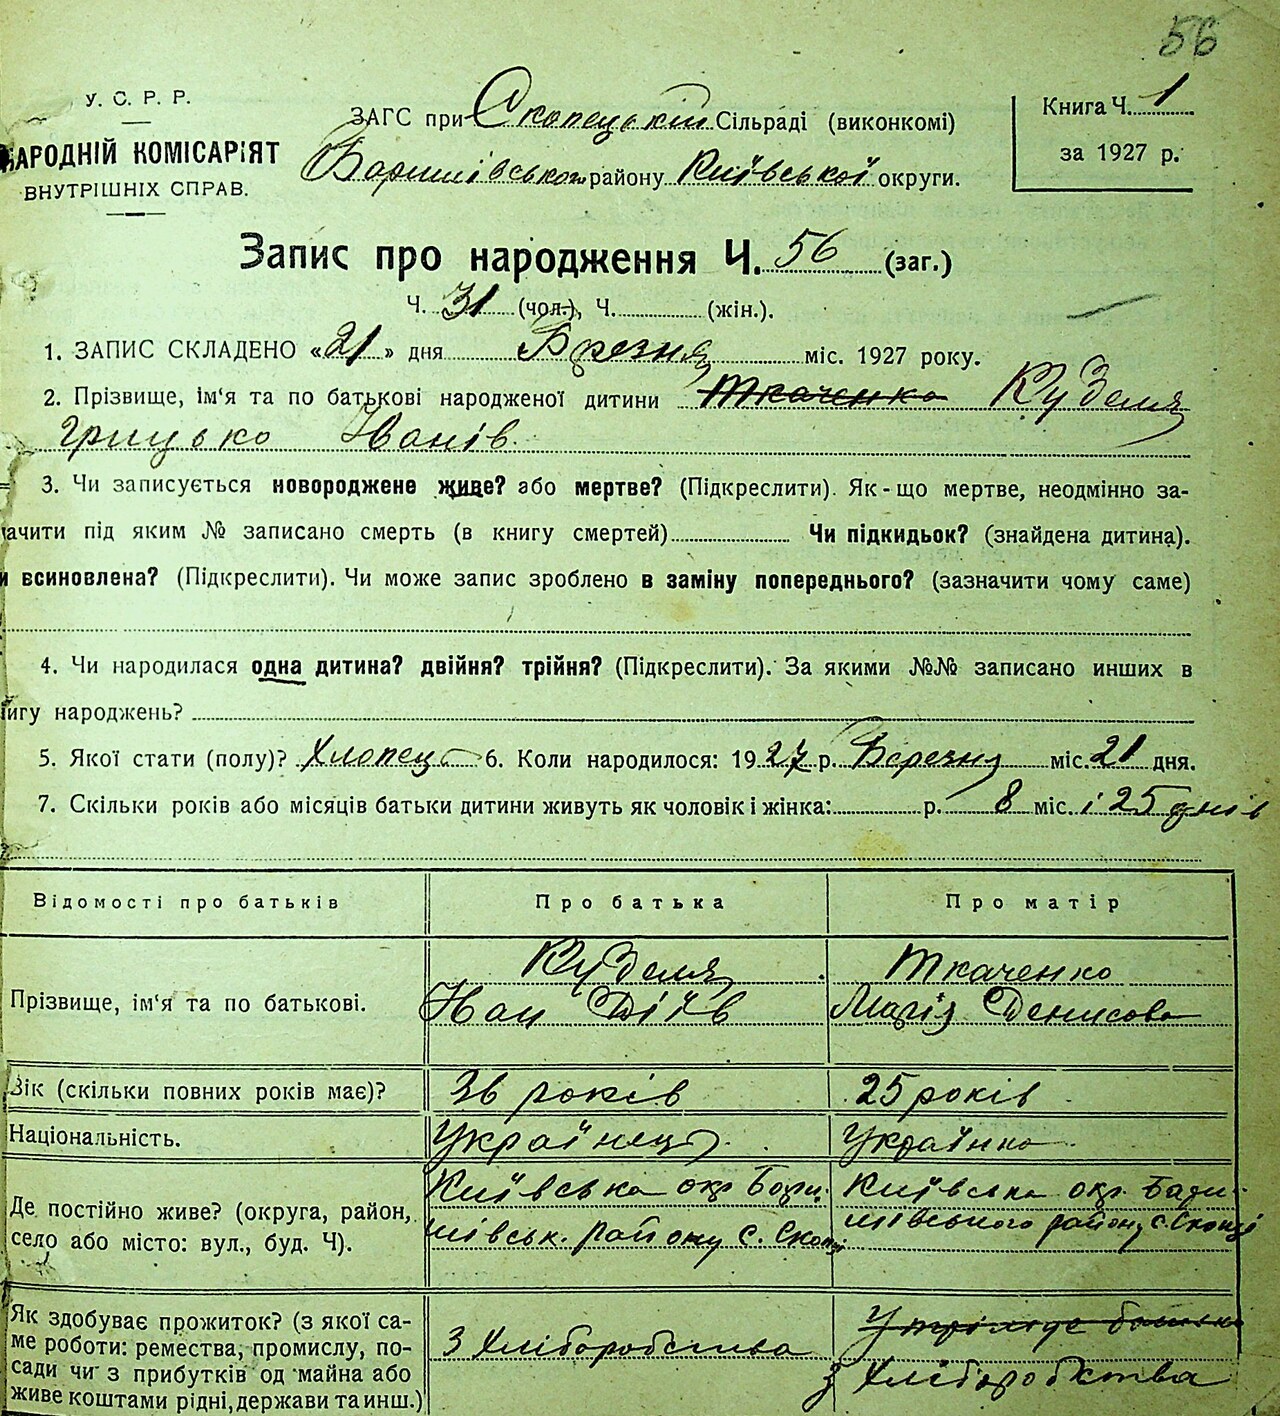 56
У. С. Р. Р.
НАРОДНІЙ КОМІСАРІЯТ
ВНУТРІШНІХ СПРАВ.
ЗАГС при Скопецькій Сільраді (виконкомі)
Баришівського району Київської округи.
Книга Ч. 1
за 1927 р.
Запис про народження Ч. 56 (заг.)
Ч. 31 (чол.), Ч. (жін.).
1. ЗАПИС СКЛАДЕНО «21» дня Березня міс. 1927 року.
2. Прізвище, ім‘я та по батькові народженої дитини Ткаченко Куделя
Грицько Іванів.
3. Чи записується новороджене живе? або мертве? (Підкреслити). Як-що мертве, неодмінно за-
ачити під яким № записано смерть (в книгу смертей) Чи підкидьок? (знайдена дитина).
и всиновлена? (Підкреслити). Чи може запис зроблено в заміну попереднього? (зазначити чому саме)
4. Чи народилася одна дитина? двійня? трійня? (Підкреслити). За якими №№ записано инших в
игу народжень?
5. Якої стати (полу)? Хлопець 6. Коли народилося: 1927 р. Березня міс. 21 дня.
7. Скільки років або місяців батьки дитини живуть як чоловік і жінка: р. 8 міс. і 25 днів
Відомості про батьків Про батька Про матір
Куделя Ткаченко
Прізвище, ім‘я та по батькові. Іван Діїв Марія Денисова
Вік (скільки повних років має)? 36 років 25 років
Національність. Українець. Українка
Київська окр. Бари- Київська окр. Бари-
Де постійно живе? (округа, район, шівськ. району с. Скопці шівського району с. Скопці
село або місто: вул., буд. Ч).
Як здобуває прожиток? (з якої са-
ме роботи: ремества, промислу, по- З Хліборобства
сади чи з прибутків од майна або з Хліборобства
живе коштами рідні, держави та инш.)